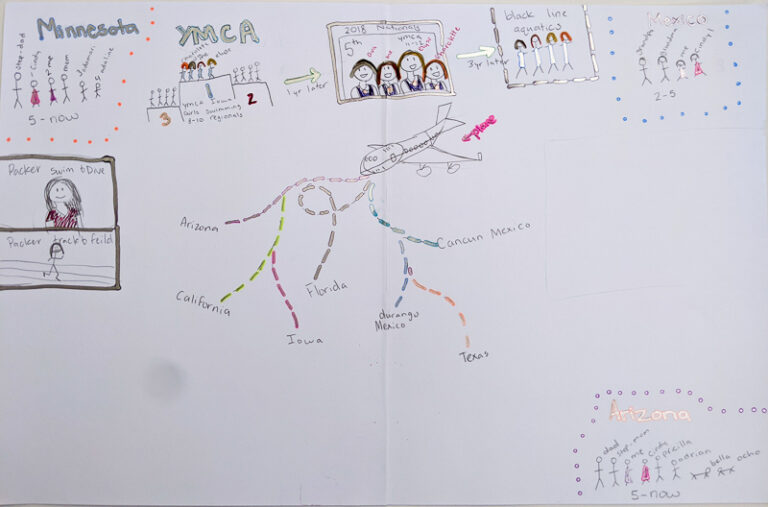 Minnesota
step-dad
Cindy
me
mom
madeline
5-now
YMCA
charlotte
me
1
2
3
ymca Iowa
Girls Swimming
8-10 regionals
1yr later
2018 Nationals
5th
ymca
11-12
me
charolette
3yr later
black line
aquatics
Mexico
Grandpa
Grandma
me
cindy
2-5
plane
Packer swim & Dive
Packer track & feild
Arizona
California
Iowa
Florida
durango
Mexico
Cancun Mexico
Texas
Arizona
dad
step-mom
me
cindy
pricilla
adrian
bella
ocho
5-now